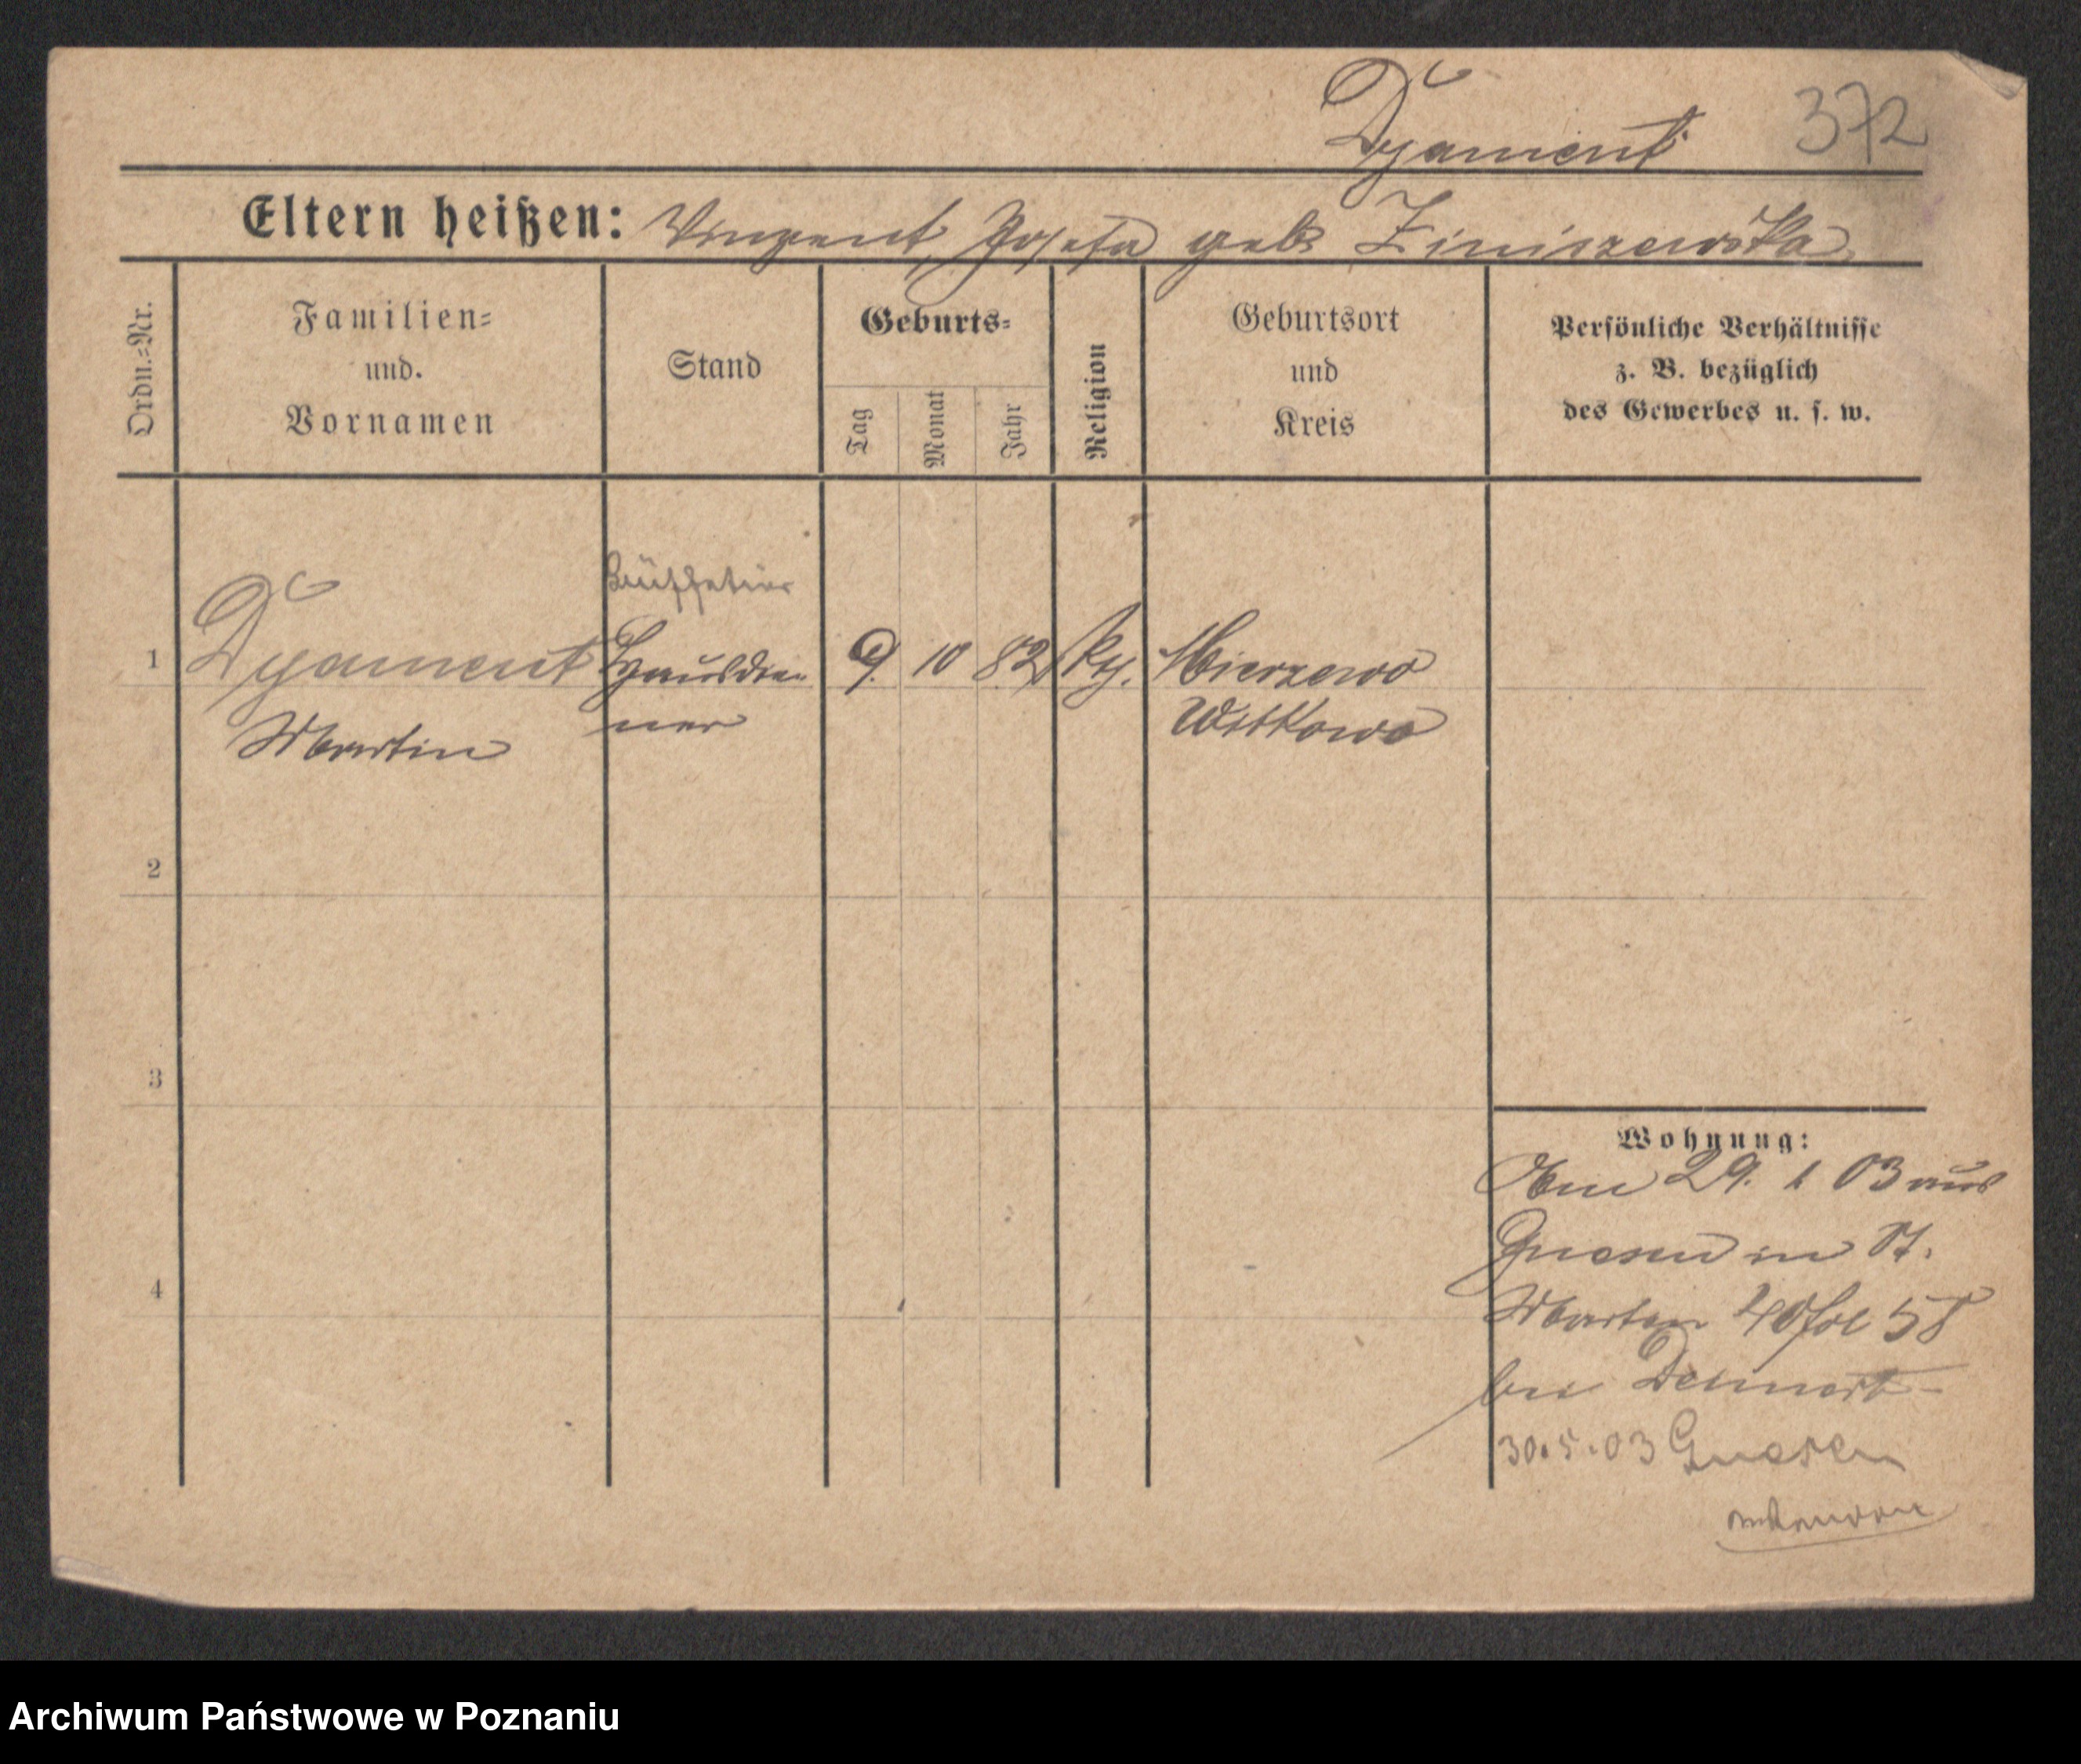 Dyament 372
Eltern heißen: Vinzent, Josefa geb. Ziniszewska
Ordn.=Nr.
Familien=
und.
Vornamen
Stand
Geburts=
Tag
Monat
Jahr
Religion
Geburtsort
und
Kreis
Persönliche Verhältnisse
z. B. bezüglich
des Gewerbes u. s. w.
Büffetier
1 Dyament Hausdie- 9. 10 82 kth. Mierzewo
Martin ner Witkowo
2
3
4
Wohnung:
Am 29. 1 03 aus
Gnesen in St.
Martin 40 fol 58
bei
30.5.03 Gnesen
Archiwum Państwowe w Poznaniu